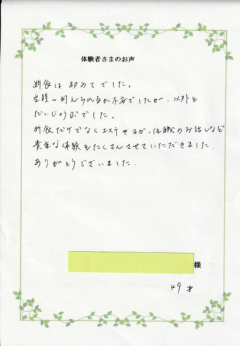 体験者さまのお声
断食は初めてでした。
空腹に耐えられるか不安でしたが、以外と
だいじょうぶでした。
断食だけでなくエステやヨガ、体験のお話しなど
貴重な体験をたくさんさせていただきました。
ありがとうございました。
様
49才